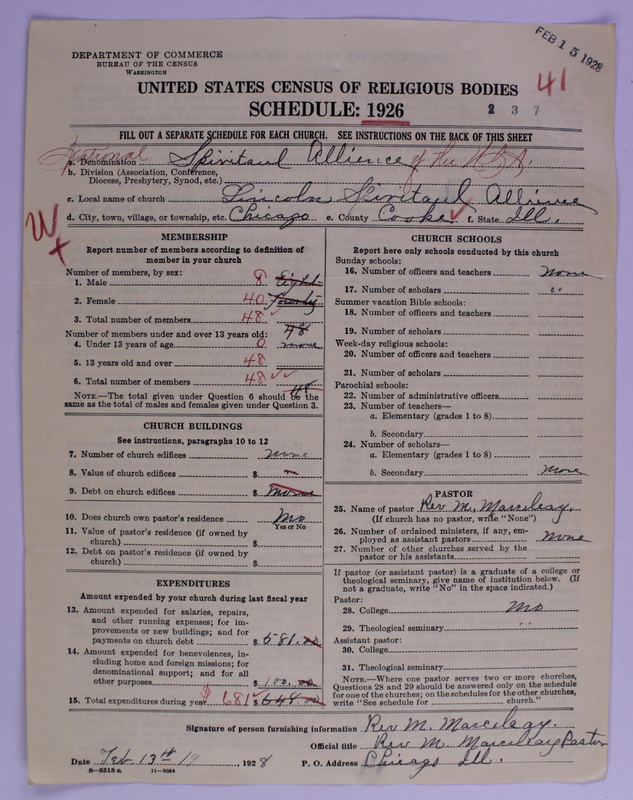 DEPARTMENT OF COMMERCE
BUREAU OF THE CENSUS
WASHINGTON
FEB 15 1928
UNITED STATES CENSUS OF RELIGIOUS BODIES
41
SCHEDULE: 1926
2 3 7
FILL OUT A SEPARATE SCHEDULE FOR EACH CHURCH. SEE INSTRUCTIONS ON THE BACK OF THIS SHEET
National
a. Denomination Spiritaul Allience of the U.S.A.
b. Division (Association, Conference,
Diocese, Presbytery, Synod, etc.)
c. Local name of church Lincoln Spiritaul Allience
d. City, town, village, or township, etc. Chicago e. County Cooke f. State Ill.
MEMBERSHIP
Report number of members according to definition of
member in your church
Number of members, by sex:
1. Male 8 Eight
2. Female 40 Fourty
3. Total number of members 48 48
Number of members under and over 13 years old:
4. Under 13 years of age 0 none
5. 13 years old and over 48
6. Total number of members 48 48
NOTE.—The total given under Question 6 should be the
same as the total of males and females given under Question 3.
CHURCH BUILDINGS
See instructions, paragraphs 10 to 12
7. Number of church edifices none
8. Value of church edifices $
9. Debt on church edifices $
10. Does church own pastor's residence No
Yes or No
11. Value of pastor's residence (if owned by
church) $
12. Debt on pastor's residence (if owned by
church) $
EXPENDITURES
Amount expended by your church during last fiscal year
13. Amount expended for salaries, repairs,
and other running expenses; for im-
provements or new buildings; and for
payments on church debt $ 581.00
14. Amount expended for benevolences, in-
cluding home and foreign missions; for
denominational support; and for all
other purposes 100.00
15. Total expenditures during year $ 681 $ 648.00
CHURCH SCHOOLS
Report here only schools conducted by this church
Sunday schools:
16. Number of officers and teachers none
17. Number of scholars "
Summer vacation Bible schools:
18. Number of officers and teachers
19. Number of scholars
Week-day religious schools:
20. Number of officers and teachers
21. Number of scholars
Parochial schools:
22. Number of administrative officers
23. Number of teachers—
a. Elementary (grades 1 to 8)
b. Secondary
24. Number of scholars—
a. Elementary (grades 1 to 8)
b. Secondary none
PASTOR
25. Name of pastor Rev M.
(If church has no pastor, write "None")
26. Number of ordained ministers, if any, em-
ployed as assistant pastors none
27. Number of other churches served by the
pastor or his assistants
If pastor (or assistant pastor) is a graduate of a college or
theological seminary, give name of institution below. (If
not a graduate, write "No" in the space indicated.)
Pastor:
28. College No
29. Theological seminary "
Assistant pastor:
30. College
31. Theological seminary
NOTE.—Where one pastor serves two or more churches,
Questions 28 and 29 should be answered only on the schedule
for one of the churches; on the schedules for the other churches,
write "See schedule for church."
Signature of person furnishing information Rev M.
Official title Rev M. Pastor
Date Feb 13th 19, 1928 P. O. Address Chicago Ill.
8-5518a 11-9034